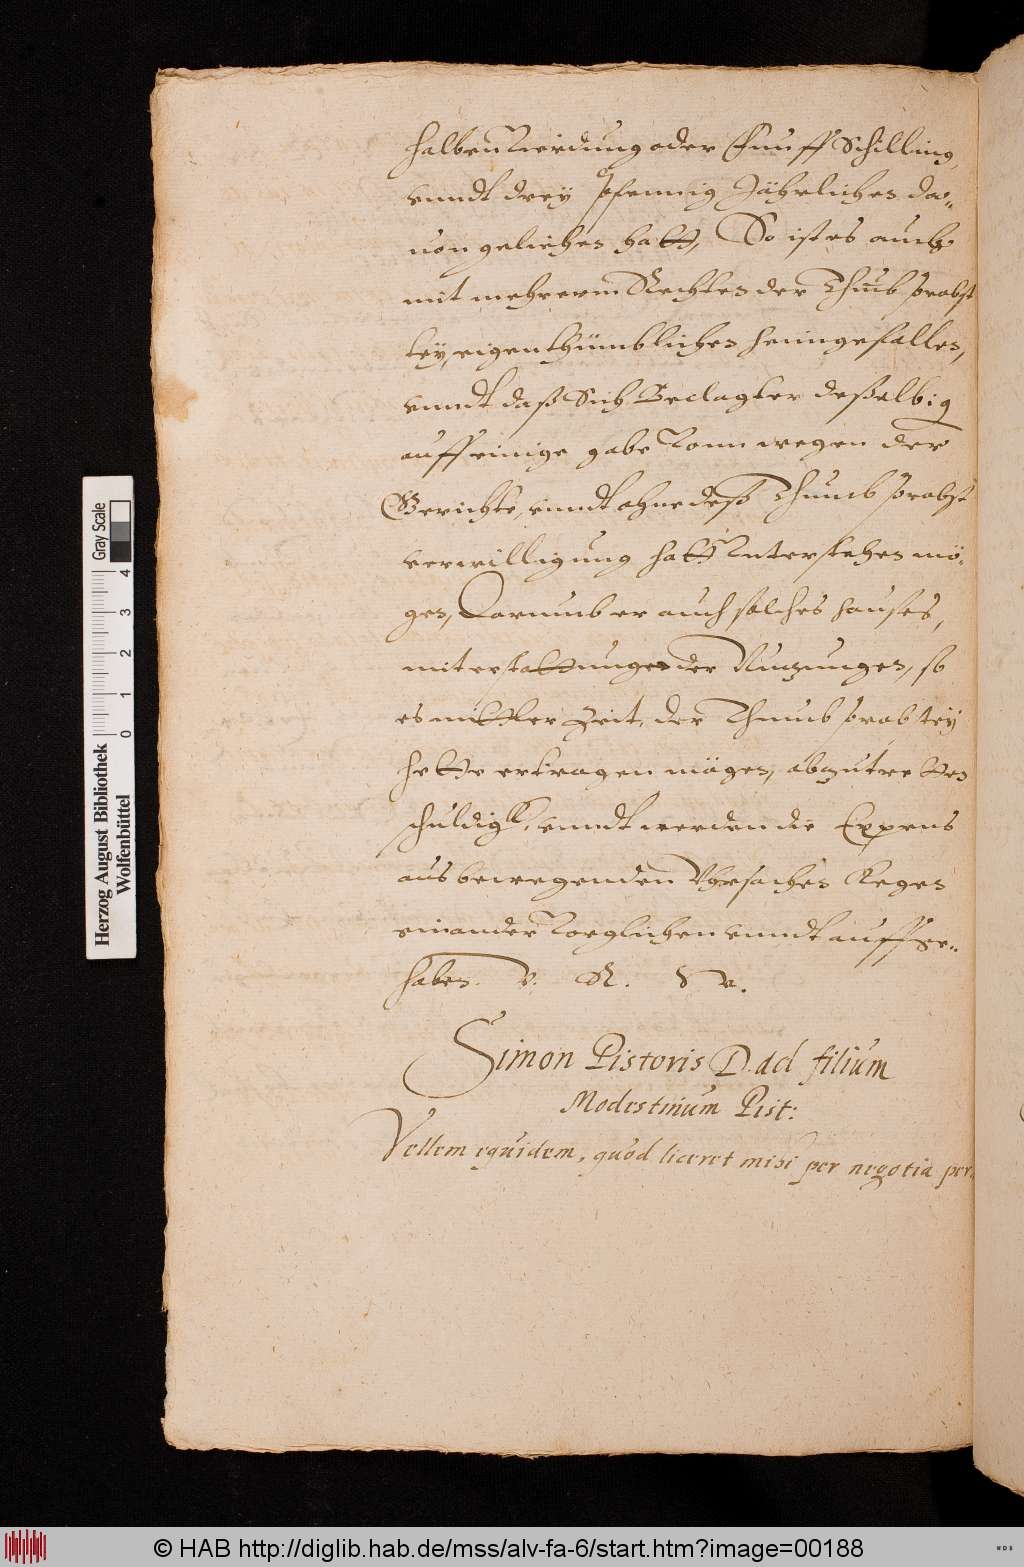 halben Vierdung oder Funff Schilling,
vnndt drey pfennig Jährlichen da-
uon geliehen hatt, So ist es auch
mit mehrerm Rechten der Thumb probst
tey, eigenthümblichen heimgefallen,
vnndt daß Sich Beclagter deßelbig
auff einige gabe Vonn wegen der
Gerichte, vnndt ohne deß Thumb probst
verwilligung hatt Vnterstehen mö-
gen, Darumb er auch solches hauses,
mit erstattungen der Nutzungen, so
es mittler Zeit, der Thumb probstey
hette ertragen mögen, abzutretten
schuldig, vnndt werden die Expens
aus bewegenden Vhrsachen kegen
einander Verglichen vnndt auffge-
haben. V. R. W.
Simon Pistoris D. ad filium
Modestinum Pist:
Vellem equidem, quod liceret mihi per negotia per-
Herzog August Bibliothek
Wolfenbüttel
0 1 2 3 4
Gray Scale
© HAB http://diglib.hab.de/mss/alv-fa-6/start.htm?image=00188